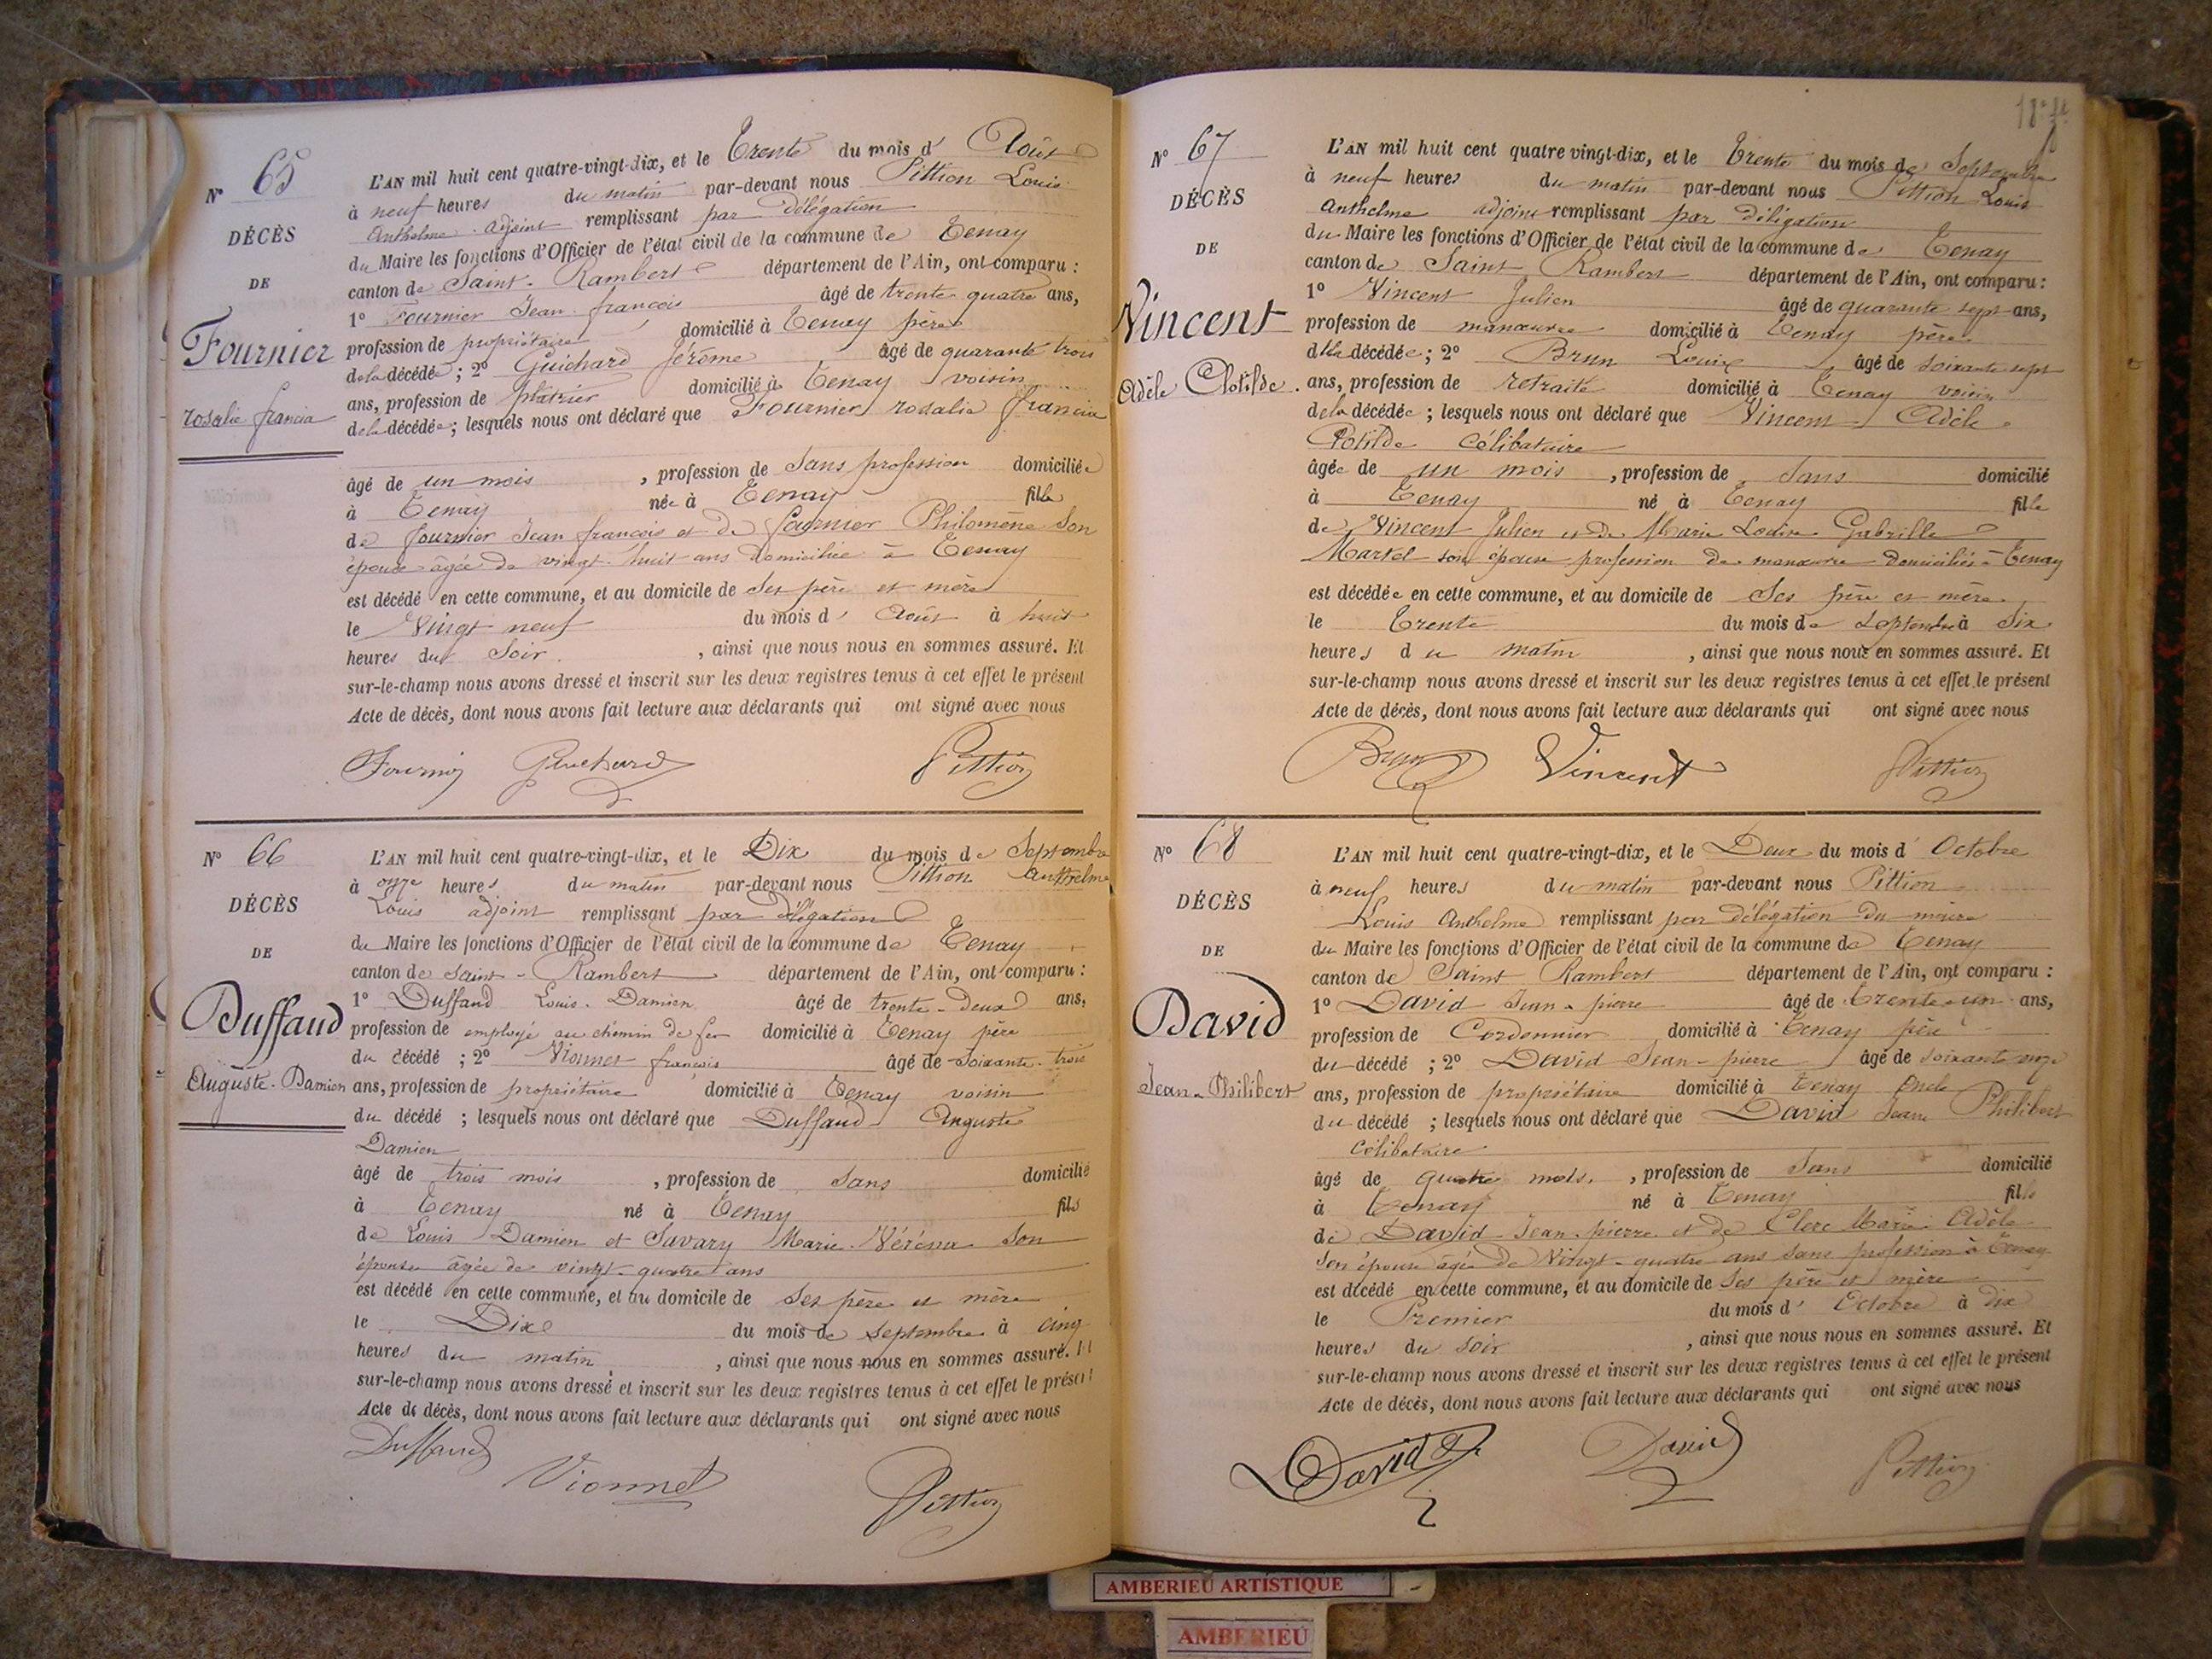 N° 65
DÉCÈS
DE
Fournier
rosalie francia
L'AN mil huit cent quatre-vingt-dix, et le Trente du mois d' Août
à neuf heures du matin par-devant nous Pittion Louis
Anthelme adjoint remplissant par délégation
du Maire les fonctions d'Officier de l'état civil de la commune de Tenay
canton de Saint-Rambert département de l'Ain, ont comparu :
1° Fournier Jean françois âgé de trente quatre ans,
profession de propriétaire domicilié à Tenay père
de la décédée ; 2° Guichard Jérôme âgé de quarante trois
ans, profession de platrier domicilié à Tenay voisin
de la décédée ; lesquels nous ont déclaré que Fournier rosalie francia
âgé de un mois , profession de Sans profession domiciliée
à Tenay née à Tenay fille
de fournier Jean françois et de fournier Philomène Son
épouse âgée de vingt-huit ans domiciliée à Tenay
est décédé en cette commune, et au domicile de ses père et mère
le Vingt neuf du mois d' Août à huit
heures du Soir , ainsi que nous nous en sommes assuré. Et
sur-le-champ nous avons dressé et inscrit sur les deux registres tenus à cet effet le présent
Acte de décès, dont nous avons fait lecture aux déclarants qui ont signé avec nous
Fournier Guichard Pittion
N° 66
DÉCÈS
DE
Duffaud
Auguste-Damien
L'AN mil huit cent quatre-vingt-dix, et le Dix du mois de Septembre
à onze heures du matin par-devant nous Pittion Anthelme
Louis adjoint remplissant par délégation
du Maire les fonctions d'Officier de l'état civil de la commune de Tenay
canton de Saint-Rambert département de l'Ain, ont comparu :
1° Duffaud Louis-Damien âgé de trente-deux ans,
profession de employé au chemin de fer domicilié à Tenay père
du décédé ; 2° Vionnet françois âgé de soixante-trois
ans, profession de propriétaire domicilié à Tenay voisin
du décédé ; lesquels nous ont déclaré que Duffaud Auguste
Damien
âgé de trois mois , profession de sans domicilié
à Tenay né à Tenay fils
de Louis Damien et Savary Marie Véréna Son
épouse âgée de vingt-quatre ans
est décédé en cette commune, et au domicile de ses père et mère
le Dix du mois de septembre à cinq
heures du matin , ainsi que nous nous en sommes assuré. Et
sur-le-champ nous avons dressé et inscrit sur les deux registres tenus à cet effet le présent
Acte de décès, dont nous avons fait lecture aux déclarants qui ont signé avec nous
Duffaud
Vionnet Pittion
N° 67
DÉCÈS
DE
Vincent
Adèle Clotilde.
L'AN mil huit cent quatre vingt-dix, et le trente du mois de Septembre
à neuf heures du matin par-devant nous Pittion Louis
Anthelme adjoint remplissant par délégation
du Maire les fonctions d'Officier de l'état civil de la commune de Tenay
canton de Saint Rambert département de l'Ain, ont comparu :
1° Vincent Julien âgé de quarante sept ans,
profession de manœuvre domicilié à Tenay père
de la décédée ; 2° Brun Louis âgé de soixante sept
ans, profession de retraité domicilié à Tenay voisin
de la décédée ; lesquels nous ont déclaré que Vincent Adèle
Clotilde célibataire
âgée de un mois , profession de Sans domicilié
à Tenay né à Tenay fille
de Vincent Julien et de Marie Louise Gabrille
Martel son épouse profession de manœuvre domiciliés à Tenay
est décédée en cette commune, et au domicile de Ses père et mère.
le Trente du mois de Septembre à Six
heures du matin , ainsi que nous nous en sommes assuré. Et
sur-le-champ nous avons dressé et inscrit sur les deux registres tenus à cet effet le présent
Acte de décès, dont nous avons fait lecture aux déclarants qui ont signé avec nous
Brun Vincent Pittion
N° 68
DÉCÈS
DE
David
Jean-Philibert
L'AN mil huit cent quatre-vingt-dix, et le Deux du mois d' Octobre
à neuf heures du matin par-devant nous Pittion
Louis Anthelme remplissant par délégation du maire
du Maire les fonctions d'Officier de l'état civil de la commune de Tenay
canton de Saint Rambert département de l'Ain, ont comparu :
1° David Jean-pierre âgé de trente-un ans,
profession de Cordonnier domicilié à Tenay père
du décédé ; 2° David Jean-pierre âgé de soixante onze
ans, profession de propriétaire domicilié à Tenay oncle
du décédé ; lesquels nous ont déclaré que David Jean Philibert
célibataire
âgé de quatre mois. , profession de Sans domicilié
à Tenay né à Tenay fils
de David Jean-pierre et de Clerc Marie Adèle
Son épouse âgée de Vingt-quatre ans sans profession à Tenay
est décédé en cette commune, et au domicile de Ses père et mère
le Premier du mois d' Octobre à dix
heures du soir , ainsi que nous nous en sommes assuré. Et
sur-le-champ nous avons dressé et inscrit sur les deux registres tenus à cet effet le présent
Acte de décès, dont nous avons fait lecture aux déclarants qui ont signé avec nous
David David Pittion
AMBERIEU ARTISTIQUE
AMBERIEU